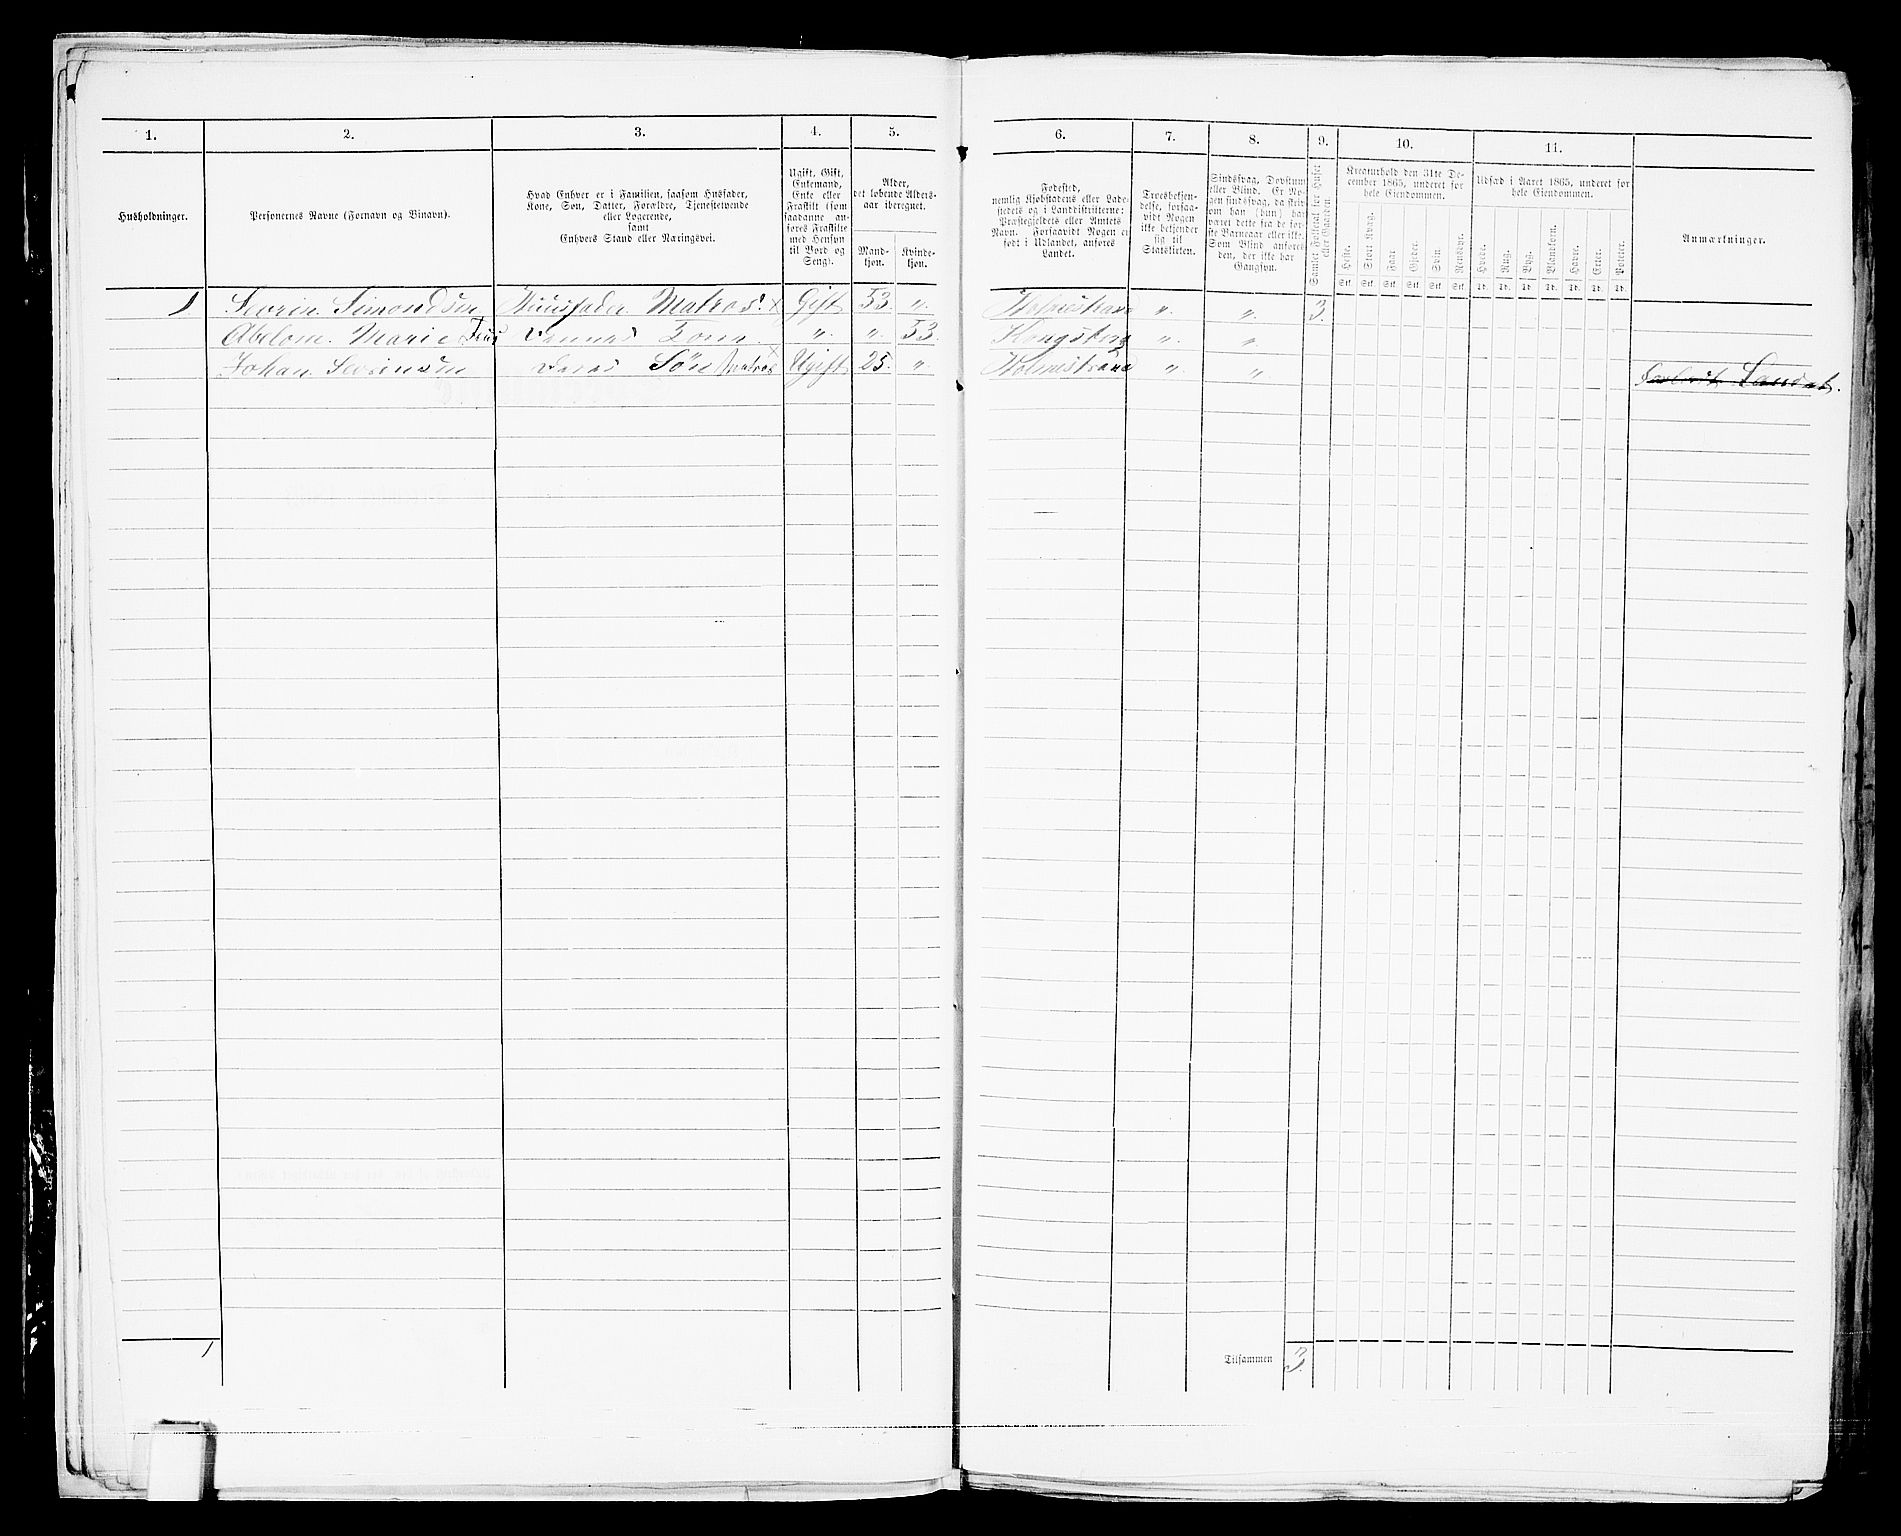 1. 2. 3. 4. 5. 6. 7. 8. 9. 10. 11.
Husholdninger.
Personernes Navne (Fornavn og Tilnavn).
Hvad Enhver er i Familien, saasom Husfader,
Kone, Søn, Datter, Forældre, Tjenestetyende
eller Logerende,
samt
Enhvers Stand eller Næringsvei.
Ugift, Gift,
Enkemand,
Enke eller
Fraskilt (som
saadanne an-
føres Fraskilte
med Hensyn
til Bord og
Seng).
Alder,
det løbende Alders-
aar iberegnet.
Mand-
kjøn.
Kvinde-
kjøn.
Fødested,
nemlig Kjøbstadens eller Lade-
stedets og i Landdistrikterne:
Præstegjeldets eller Amtets
Navn. Forsaavidt Nogen er
født i Udlandet, anføres
Landet.
Troesbekjen-
delse, forsaa-
vidt Nogen
ikke bekjender
sig til
Statskirken.
Sindssvag, Døvstum
eller Blind. Er No-
gen sindssvag, da skriv
om han (hun) har
været dette fra de før-
ste Barneaar eller ikke.
Som Blind anføres
den, der ikke har
Gangsyn.
Samlet Folketal for Huset
eller Gaarden.
Kreaturhold den 31te De-
cember 1865, underet for
hele Eiendommen.
Heste. Stort Kvæg. Faar Gjeder. Svin Rensdyr.
Stk. Stk. Stk. Stk. Stk. Stk.
Udsæd i Aaret 1865, underet for
hele Eiendommen.
Hvede. Rug. Byg. Blandkorn. Havre. Erter. Poteter.
Td. Td. Td. Td. Td. Td. Td.
Anmærkninger.
1 Sevrin Simondsen Huusfader Matros. x Gift 53 „ Holmestrand „ „ 3
Abelone Marie Kone „ „ 53. Kongsberg „ „
Johan Sevrinsen Søn Matros x Ugift 25. „ Holmestrand „ „
1 Tilsammen 3.